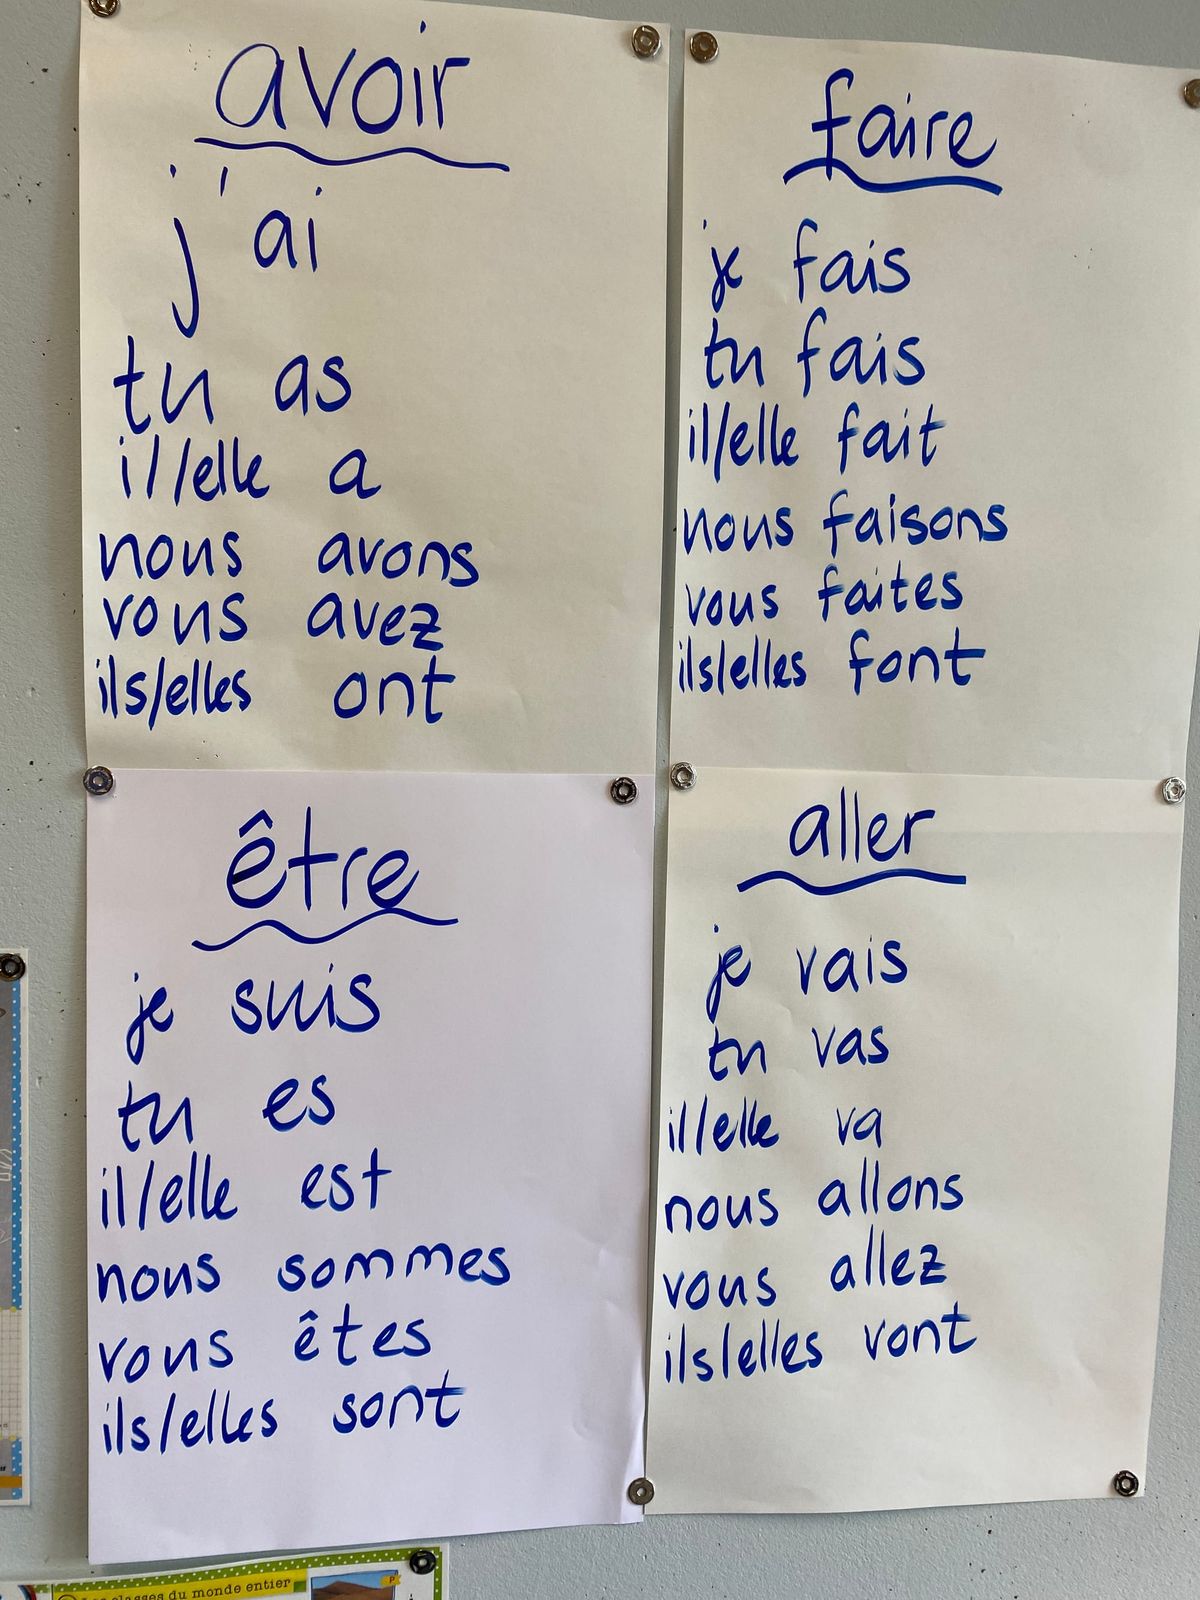 avoir
j'ai
tu as
il/elle a
nous avons
vous avez
ils/elles ont
faire
je fais
tu fais
il/elle fait
nous faisons
vous faites
ils/elles font
être
je suis
tu es
il/elle est
nous sommes
vous êtes
ils/elles sont
aller
je vais
tu vas
il/elle va
nous allons
vous allez
ils/elles vont
classes du monde entier
P